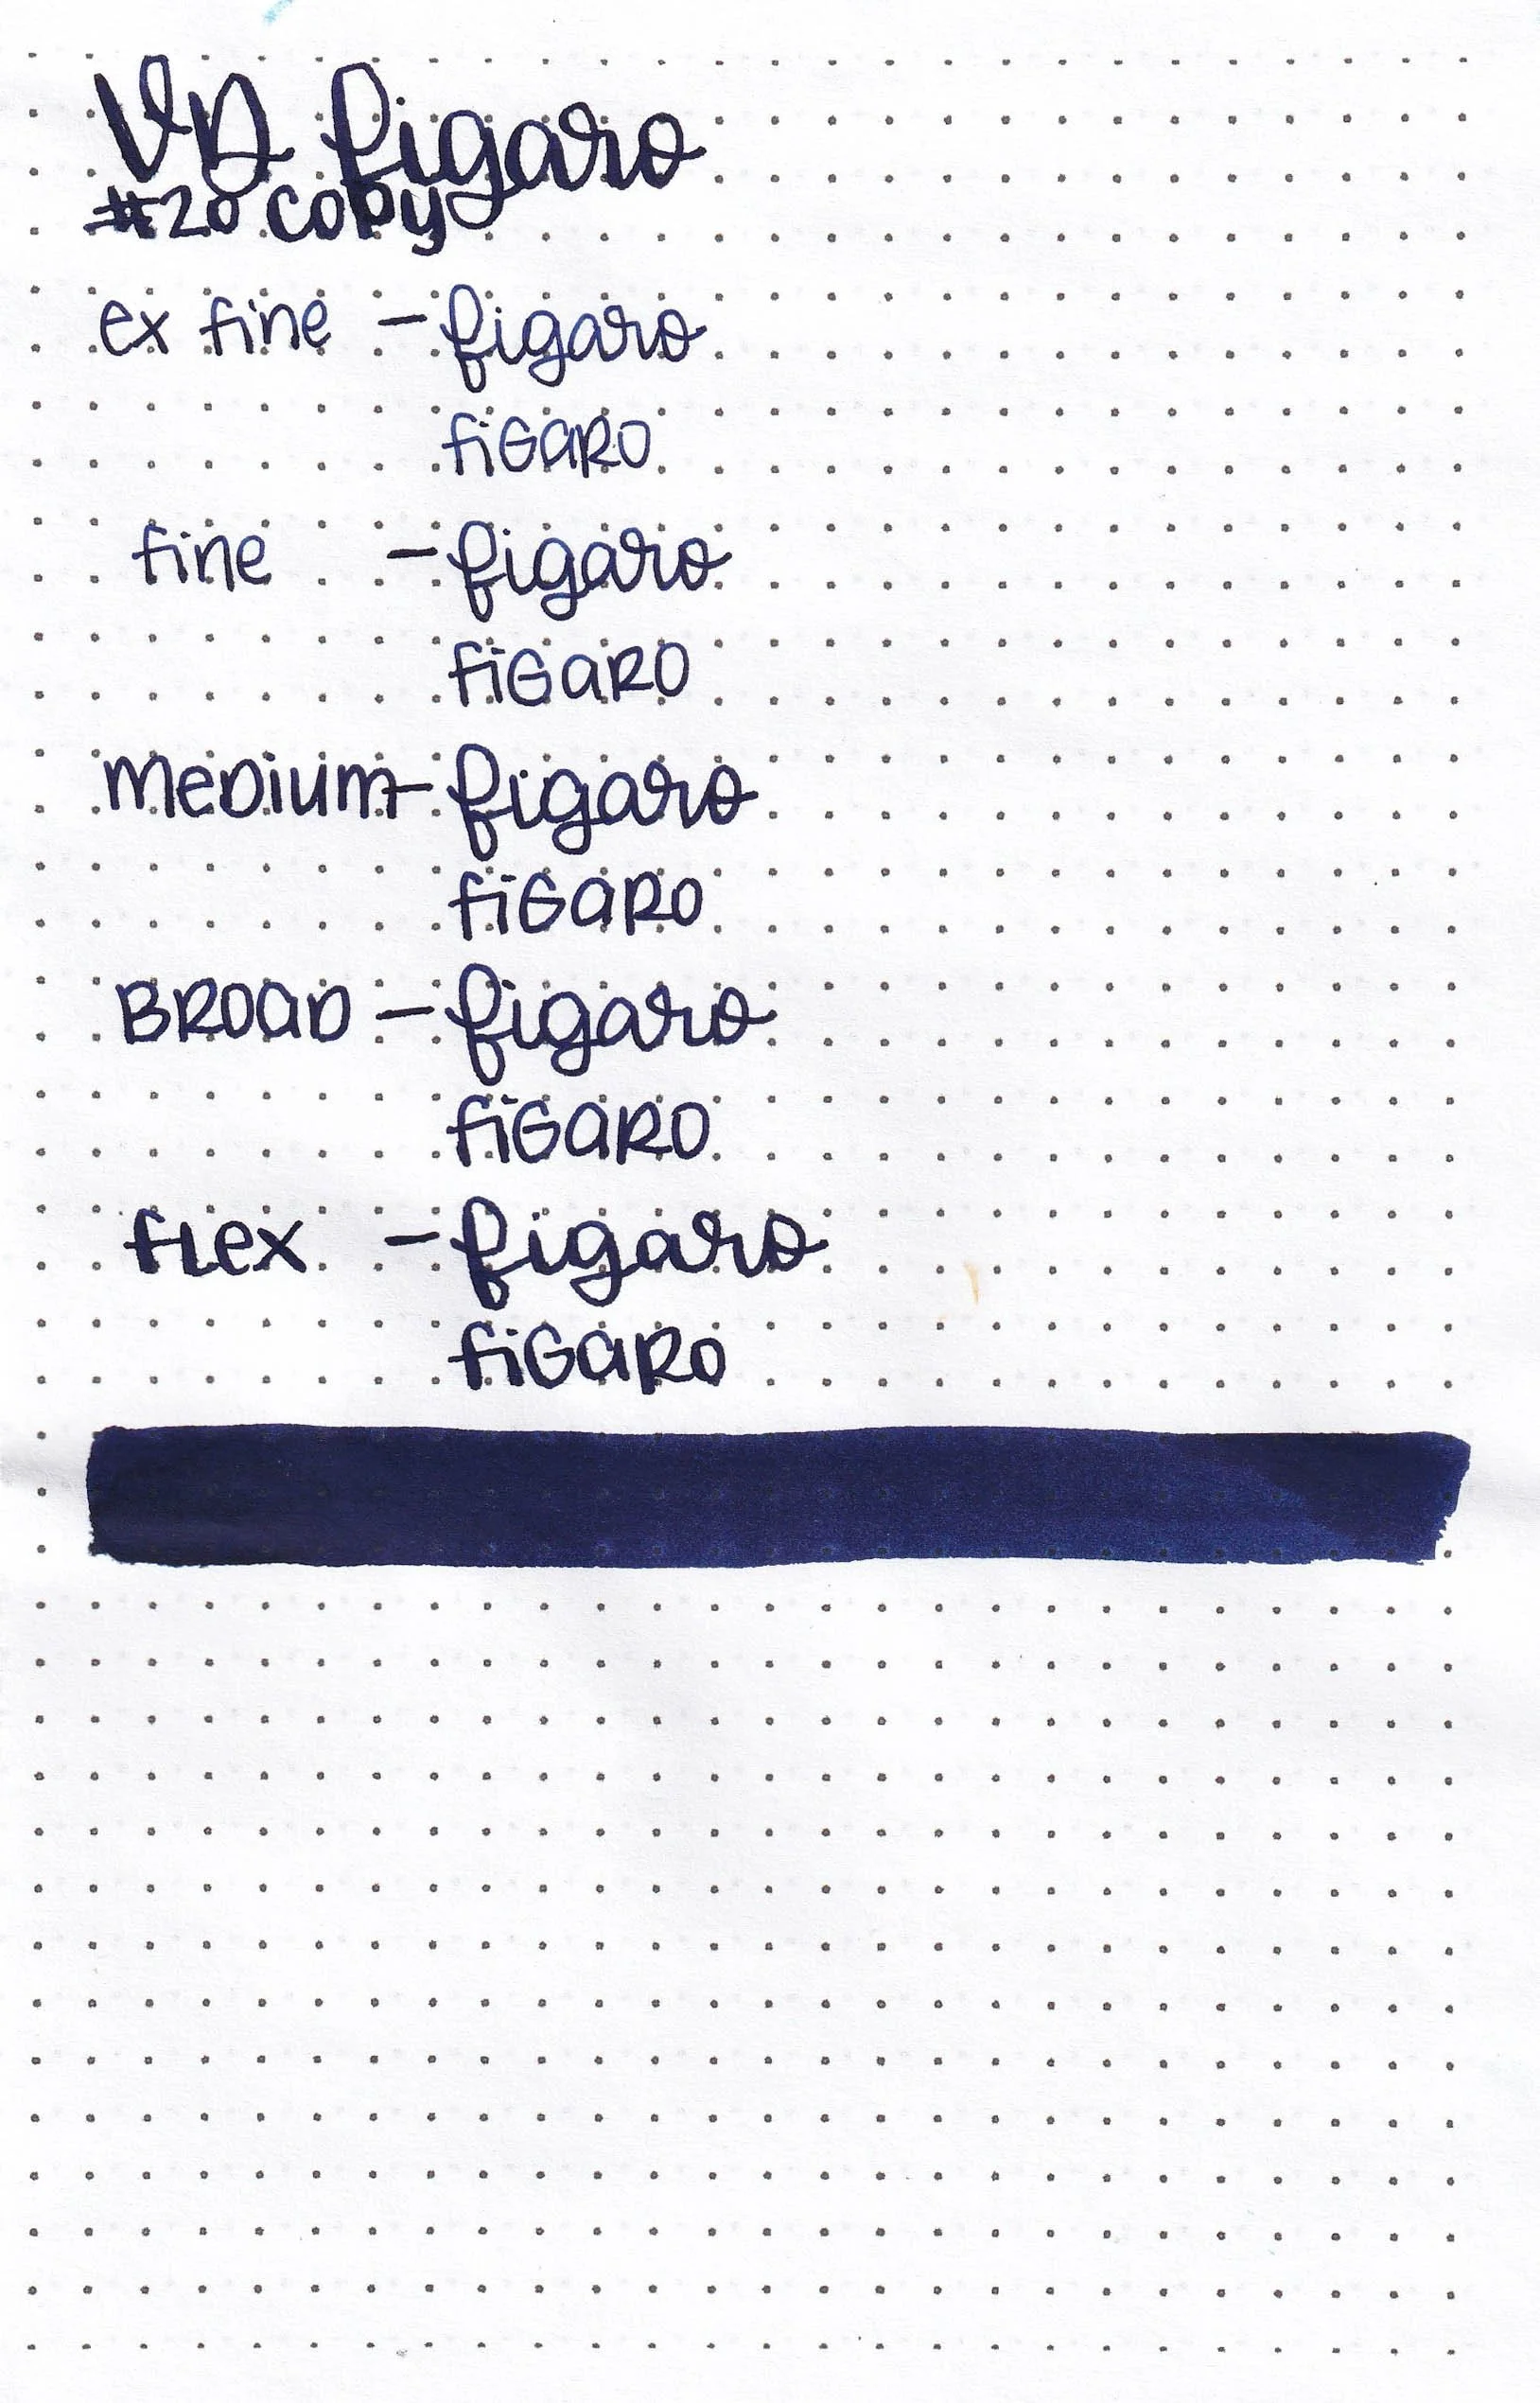 VD figaro
#20 copy
ex fine - figaro
fiGaRO
fine - figaro
fiGaRO
meDium - figaro
fiGaRO
BROaD - figaro
fiGaRO
fLex - figaro
fiGaRo